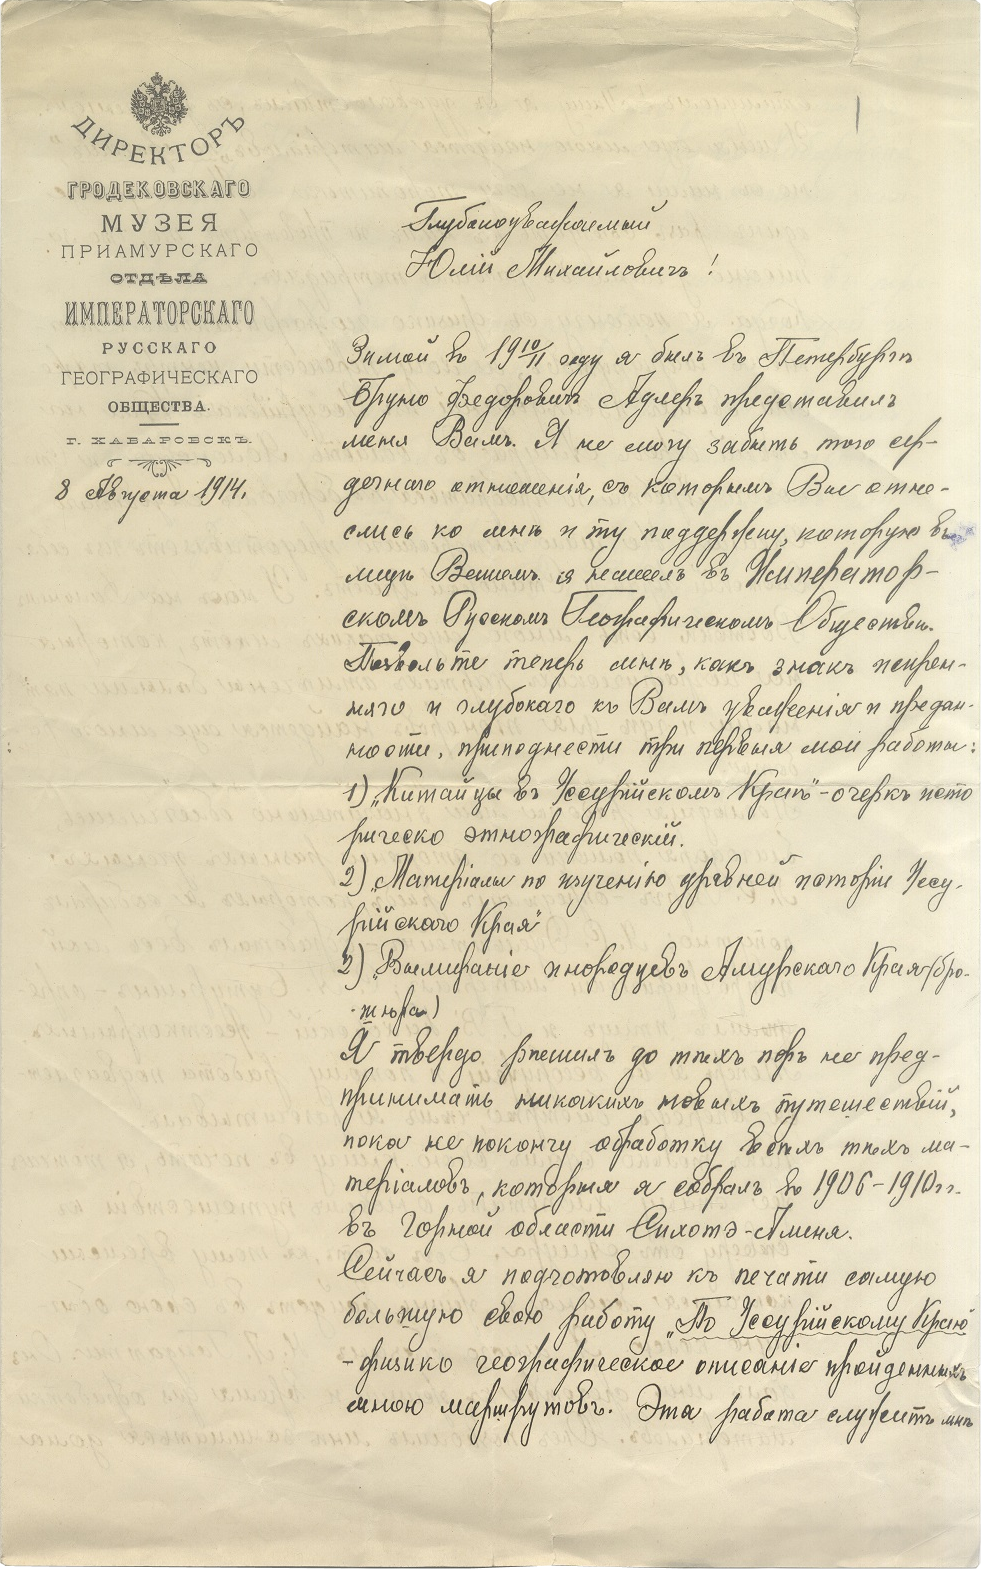 ДИРЕКТОРЪ
ГРОДЕКОВСКАГО
МУЗЕЯ
ПРИАМУРСКАГО
ОТДѢЛА
ИМПЕРАТОРСКАГО
РУССКАГО
ГЕОГРАФИЧЕСКАГО
ОБЩЕСТВА.
Г. ХАБАРОВСКЪ.
8 Августа 1914.
Глубокоуважаемый
Юлій Михайловичъ!
Зимой во 19 10/11 году я былъ въ Петербургѣ
Бруно Федоровичъ Адлеръ представилъ
меня Вамъ. Я не могу забыть того сер-
дечнаго отношенія, съ которымъ Вы отне-
слись ко мнѣ и ту поддержку, которую въ
лицѣ Вашемъ я нашелъ въ Император-
скомъ Русскомъ Географическомъ Обществѣ.
Позвольте теперь мнѣ, какъ знакъ искрен-
няго и глубокаго къ Вамъ уваженія и предан-
ности, преподнести три первыя мои работы:
1) „Китайцы въ Уссурійскомъ Краѣ" - очеркъ исто
рическо этнографическій.
2) „Матеріалы по изученію древней исторіи Уссу-
рійскаго Края"
2) „Вымираніе инородцевъ Амурскаго Края (бро-
шюра)
Я твердо рѣшилъ до тѣхъ поръ не пред-
принимать никакихъ новыхъ путешествій,
пока не покончу обработку всѣхъ тѣхъ ма-
теріаловъ, которыя я собралъ во 1906-1910 гг.
въ горной области Сихотэ-Алиня.
Сейчасъ я подготовляю къ печати самую
большую свою работу „По Уссурійскому Краю"
- физико географическое описаніе пройденныхъ
мною маршрутовъ. Эта работа служитъ мнѣ